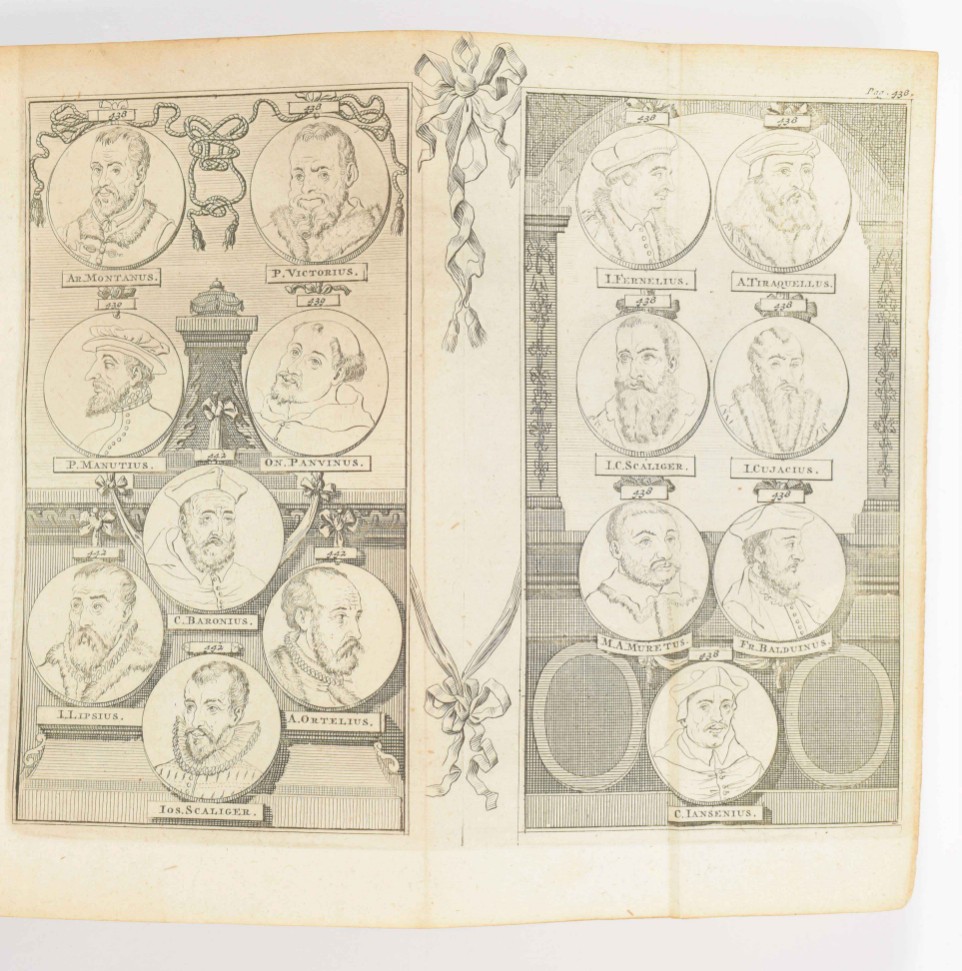 Pag. 438.
438
438
AR.MONTANUS.
P.VICTORIUS.
439
439
P.MANUTIUS.
ON.PANVINUS.
442
C.BARONIUS.
442
442
I.LIPSIUS.
A.ORTELIUS.
442
IOS.SCALIGER.
438
438
I.FERNELIUS.
A.TIRAQUELLUS.
438
438
I.C.SCALIGER.
I.CUJACIUS.
438
438
M.A.MURETUS.
FR.BALDUINUS.
438
C.IANSENIUS.